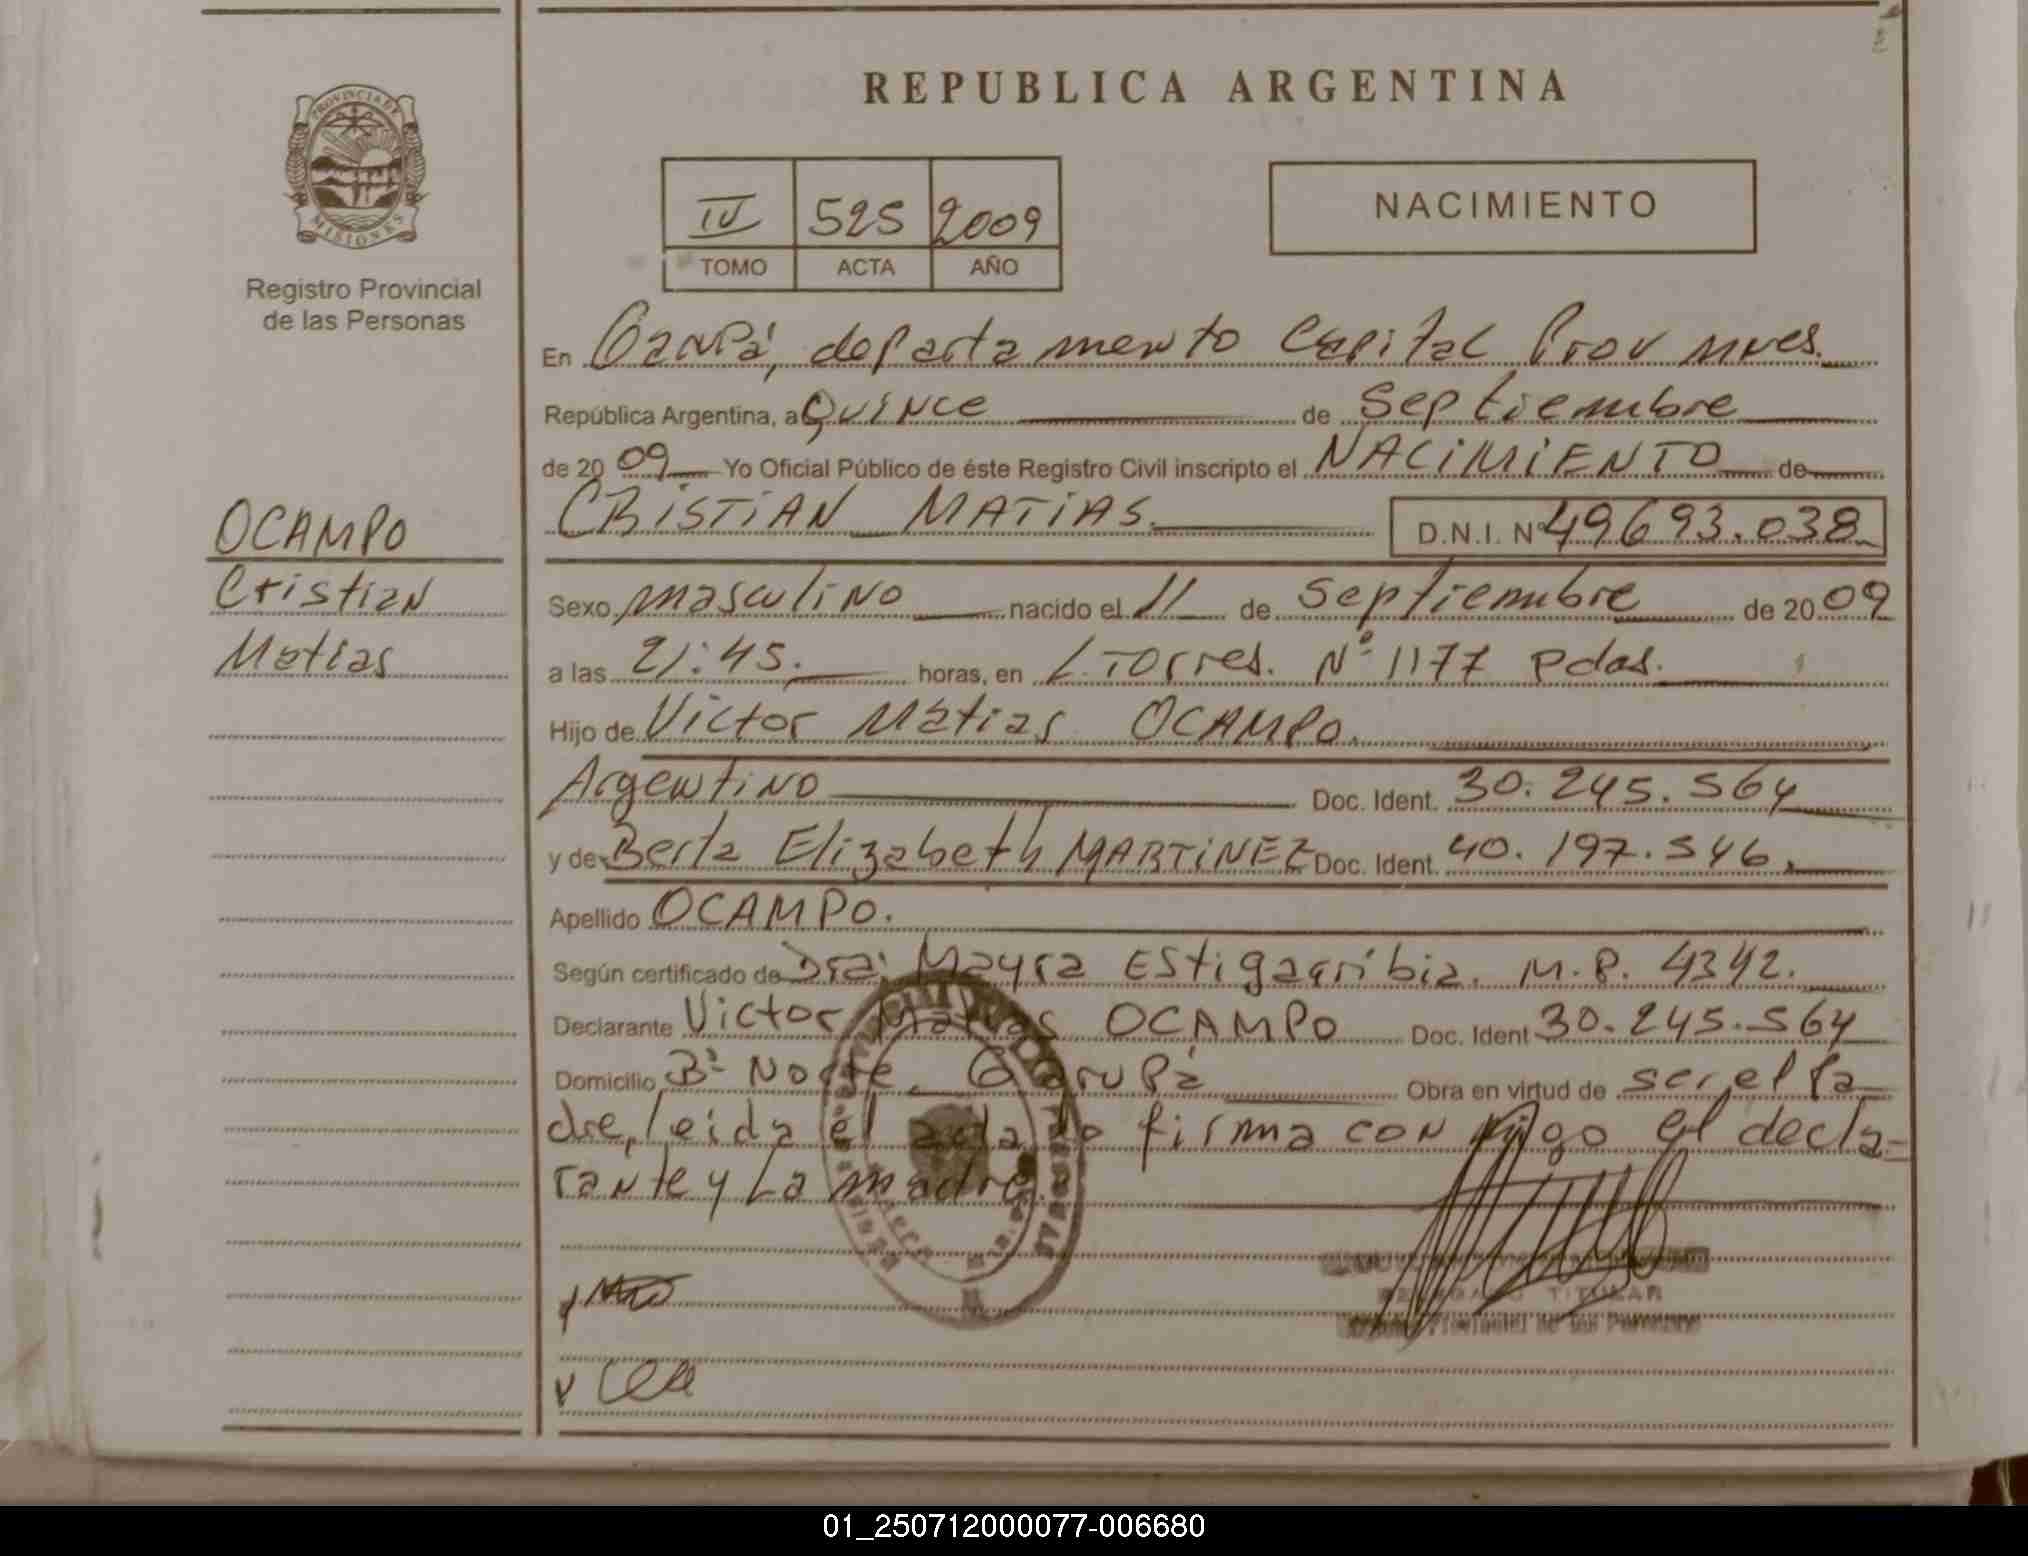 REPUBLICA ARGENTINA
PROVINCIA DE
MISIONES
Registro Provincial
de las Personas
IV 525 2009
TOMO ACTA AÑO
NACIMIENTO
En Garupá, departamento Capital Prov Mnes.
República Argentina, a Quince de Septiembre
de 2009 Yo Oficial Público de éste Registro Civil inscripto el NACIMIENTO de
CRISTIAN MATIAS. D.N.I. Nº 49693.038
OCAMPO
Cristian
Matias
Sexo masculino nacido el 11 de Septiembre de 2009
a las 21:45. horas, en L. Torres. Nº 1177 Pdas.
Hijo de Victor Matias OCAMPO.
Argentino Doc. Ident. 30.245.564
y de Berta Elizabeth MARTINEZ Doc. Ident. 40.197.546.
Apellido OCAMPO.
Según certificado de Dra. Mayra Estigarribia. M.P. 4342.
Declarante Victor Matias OCAMPO Doc. Ident 30.245.564
Domicilio Bº Norte, Garupá Obra en virtud de ser el Pa-
dre, leida el acta lo firma conmigo el decla-
rante y La madre.
TITULAR
Provincial de las Personas
01_250712000077-006680